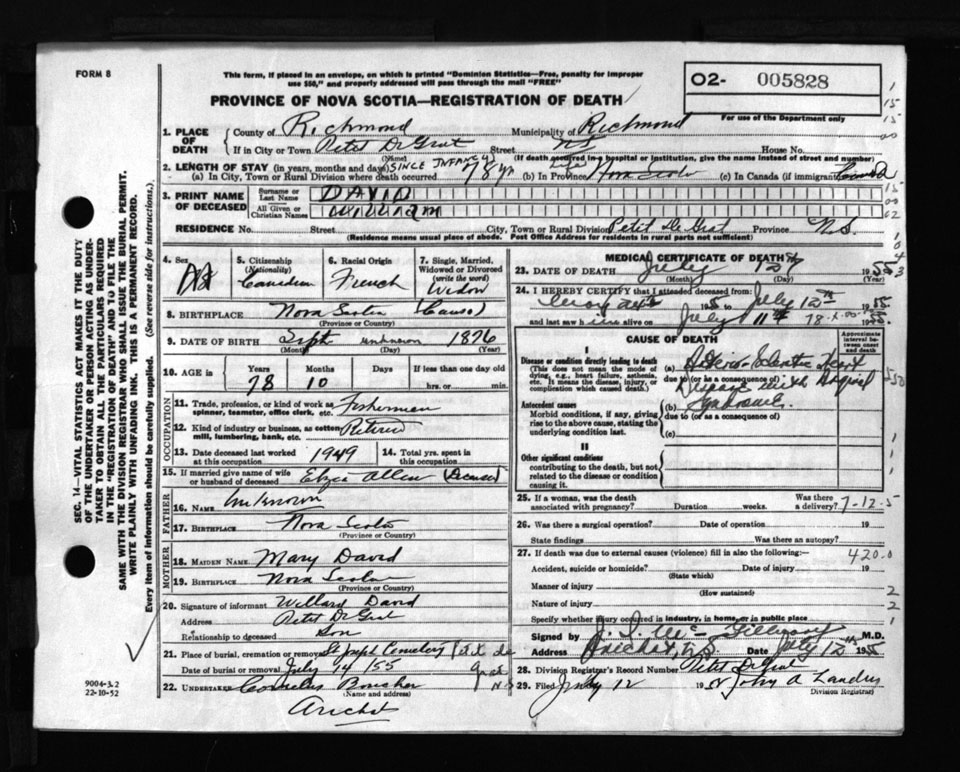 FORM 8
This form, if placed in an envelope, on which is printed "Dominion Statistics—Free, penalty for improper
use $50," and properly addressed will pass through the mail "FREE"
O2- 005828
For use of the Department only
PROVINCE OF NOVA SCOTIA—REGISTRATION OF DEATH
1. PLACE OF DEATH
County of Richmond Municipality of Richmond
If in City or Town Petit De Grat Street NS House No.
(Name) (If death occurred in a hospital or institution, give the name instead of street and number)
2. LENGTH OF STAY (in years, months and days) SINCE INFANCY
(a) In City, Town or Rural Division where death occurred 78 yr (b) In Province Nova Scotia (c) In Canada (if immigrant)
3. PRINT NAME OF DECEASED
Surname or Last Name DAVID
All Given or Christian Names William
RESIDENCE No. Street City, Town or Rural Division Petit De Grat Province N.S.
(Residence means usual place of abode. Post Office Address for residents in rural parts not sufficient)
4. Sex
5. Citizenship (Nationality) Canadian
6. Racial Origin French
7. Single, Married, Widowed or Divorced (write the word) Widow
8. BIRTHPLACE Nova Scotia
(Province or Country)
9. DATE OF BIRTH Sept unknown 1876
(Month) (Day) (Year)
10. AGE in Years Months Days If less than one day
78 10 hrs. or min.
OCCUPATION
11. Trade, profession, or kind of work as spinner, teamster, office clerk, etc. Fisherman
12. Kind of industry or business, as cotton mill, lumbering, bank, etc. Retired
13. Date deceased last worked at this occupation 1949
14. Total yrs. spent in this occupation
15. If married give name of wife or husband of deceased Allen
FATHER
16. NAME Unknown
17. BIRTHPLACE Nova Scotia
(Province or Country)
MOTHER
18. MAIDEN NAME Mary David
19. BIRTHPLACE Nova Scotia
(Province or Country)
20. Signature of informant Willard David
Address Petit De Grat
Relationship to deceased Son
21. Place of burial, cremation or removal St Joseph Cemetery Petit de Grat N.S
Date of burial or removal July 14/55
22. UNDERTAKER Boucher
Arichat
MEDICAL CERTIFICATE OF DEATH
23. DATE OF DEATH July 12th 1955
(Month) (Day) (Year)
24. I HEREBY CERTIFY that I attended deceased from:
195 to July 12th 1955
and last saw him alive on July 11th 1955
CAUSE OF DEATH
Approximate interval between onset and death
I
Disease or condition directly leading to death
(This does not mean the mode of dying, e.g., heart failure, asthenia, etc. It means the disease, injury, or complication which caused death.)
(a) Arterio-Sclerotic Heart
due to (or as consequence of)
Disease with Anginal
Syndrome
Antecedent causes
Morbid conditions, if any, giving rise to the above cause, stating the underlying condition last.
(b)
due to (or as a consequence of)
(c)
II
Other significant conditions
contributing to the death, but not related to the disease or condition causing it.
25. If a woman, was the death associated with pregnancy? Duration weeks. Was there a delivery?
7-12-5
26. Was there a surgical operation? Date of operation 19
State findings Was there an autopsy?
27. If death was due to external causes (violence) fill in also the following:
420.0
Accident, suicide or homicide? Date of injury 19
(State which)
Manner of injury
(How sustained)
Nature of injury
Specify whether injury occurred in industry, in home, or in public place
Signed by M.D.
Address Arichat, N.S. Date July 12th 1955
28. Division Registrar's Record Number Petit De Grat
29. Filed July 12 19 John A Landry
Division Registrar
SEC. 14—VITAL STATISTICS ACT MAKES IT THE DUTY
OF THE UNDERTAKER OR PERSON ACTING AS UNDER-
TAKER TO OBTAIN ALL THE PARTICULARS REQUIRED
IN THE "REGISTRATION OF DEATH" AND TO FILE THE
SAME WITH THE DIVISION REGISTRAR WHO SHALL ISSUE THE BURIAL PERMIT.
WRITE PLAINLY WITH UNFADING INK. THIS IS A PERMANENT RECORD.
Every item of information should be carefully supplied. (See reverse side for instructions.)
9004-3.2
22-10-52